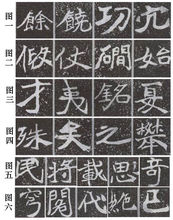 图一 餘 饒 功
图二 假 仗 磵 始
图三 才 夷 銘 夏
图四 殊 矣 之 攀
图五 民 將 載 思 奇
图六 閣 代 已